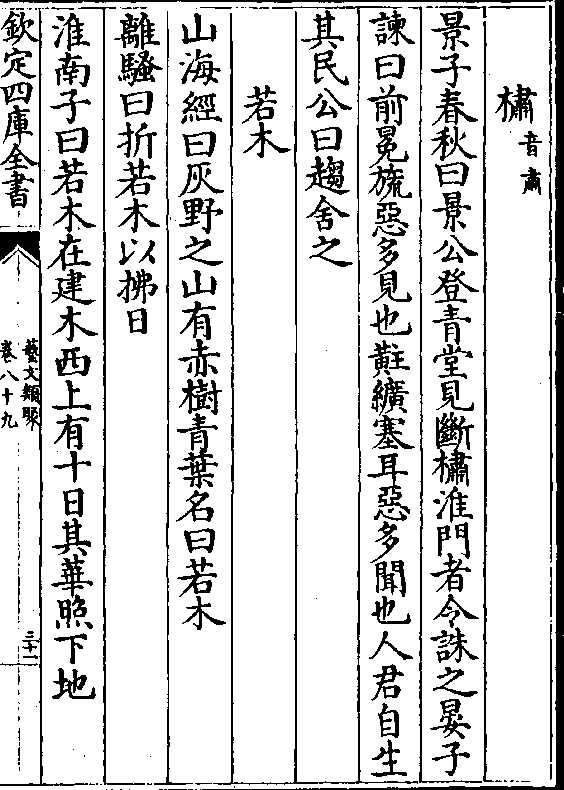 橚音肅
景子春秋曰景公登青堂見斷橚淮門者令誅之晏子
諫曰前冕旒惡多見也黈纊塞耳惡多聞也人君自生
其民公曰趨舍之
若木
山海經曰灰野之山有赤樹青葉名曰若木
離騷曰折若木以拂日
淮南子曰若木在建木西上有十日其華照下地
欽定四庫全書
藝文類聚
卷八十九
三十一